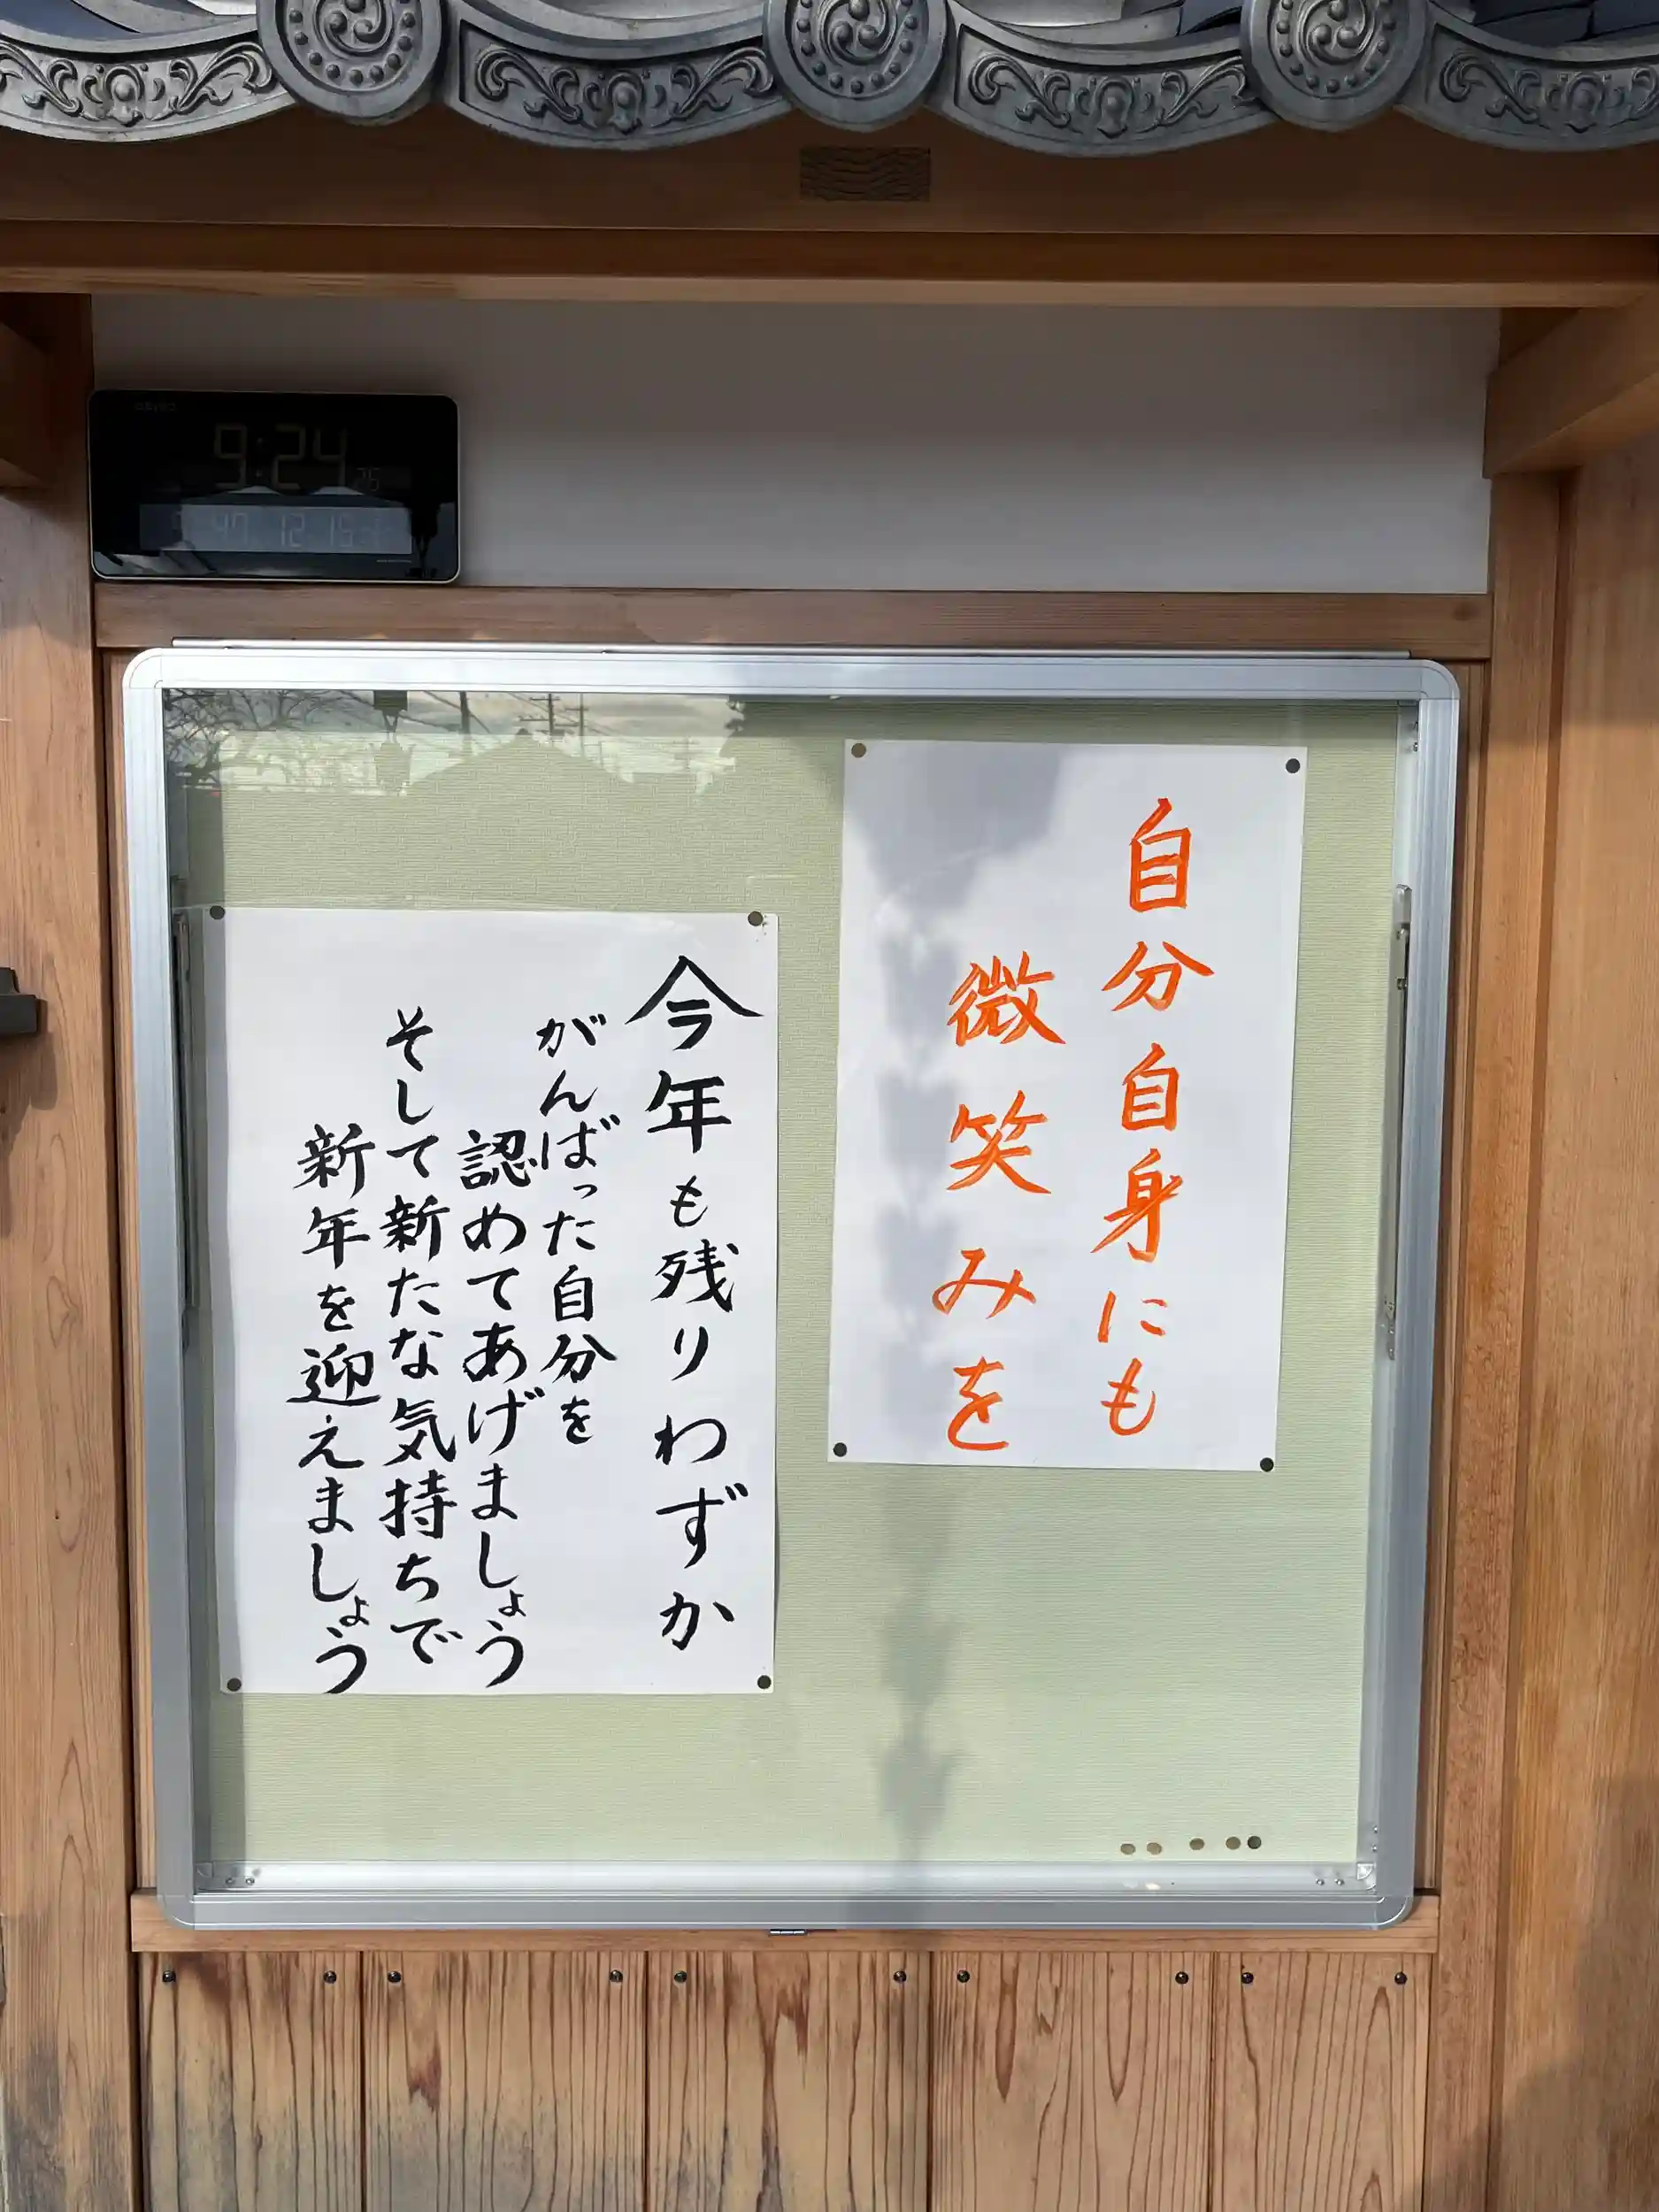 9:24
自分自身にも
微笑みを
今年も残りわずか
がんばった自分を
認めてあげましょう
そして新たな気持ちで
新年を迎えましょう